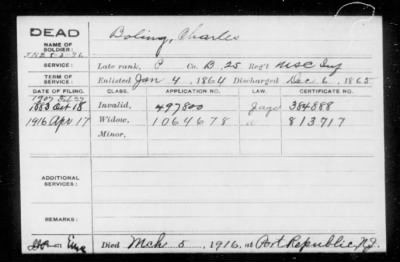 DEAD
NAME OF SOLDIER:
Boling, Charles
SERVICE:
Late rank, P Co. B 25 Reg't USC Inf
TERM OF SERVICE:
Enlisted Jan 4, 1864 Discharged Dec 6, 1865
DATE OF FILING. CLASS. APPLICATION NO. LAW. CERTIFICATE NO.
1883 Oct 18 Invalid, 497800 384888
1916 Apr 17 Widow, 1064678 813717
Minor,
ADDITIONAL SERVICES:
REMARKS:
Died Mch 5, 1916, at Port Republic, N.J.